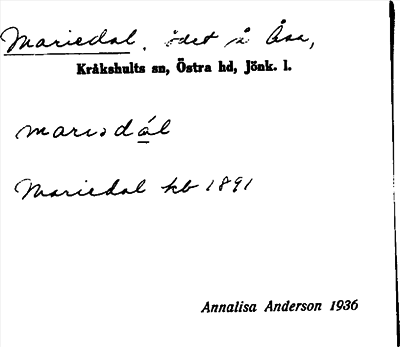 Mariedal, ödet å Åsa,
Kråkshults sn, Östra hd, Jönk. l.
marıɔdál
Mariedal kb 1891
Annalisa Anderson 1936